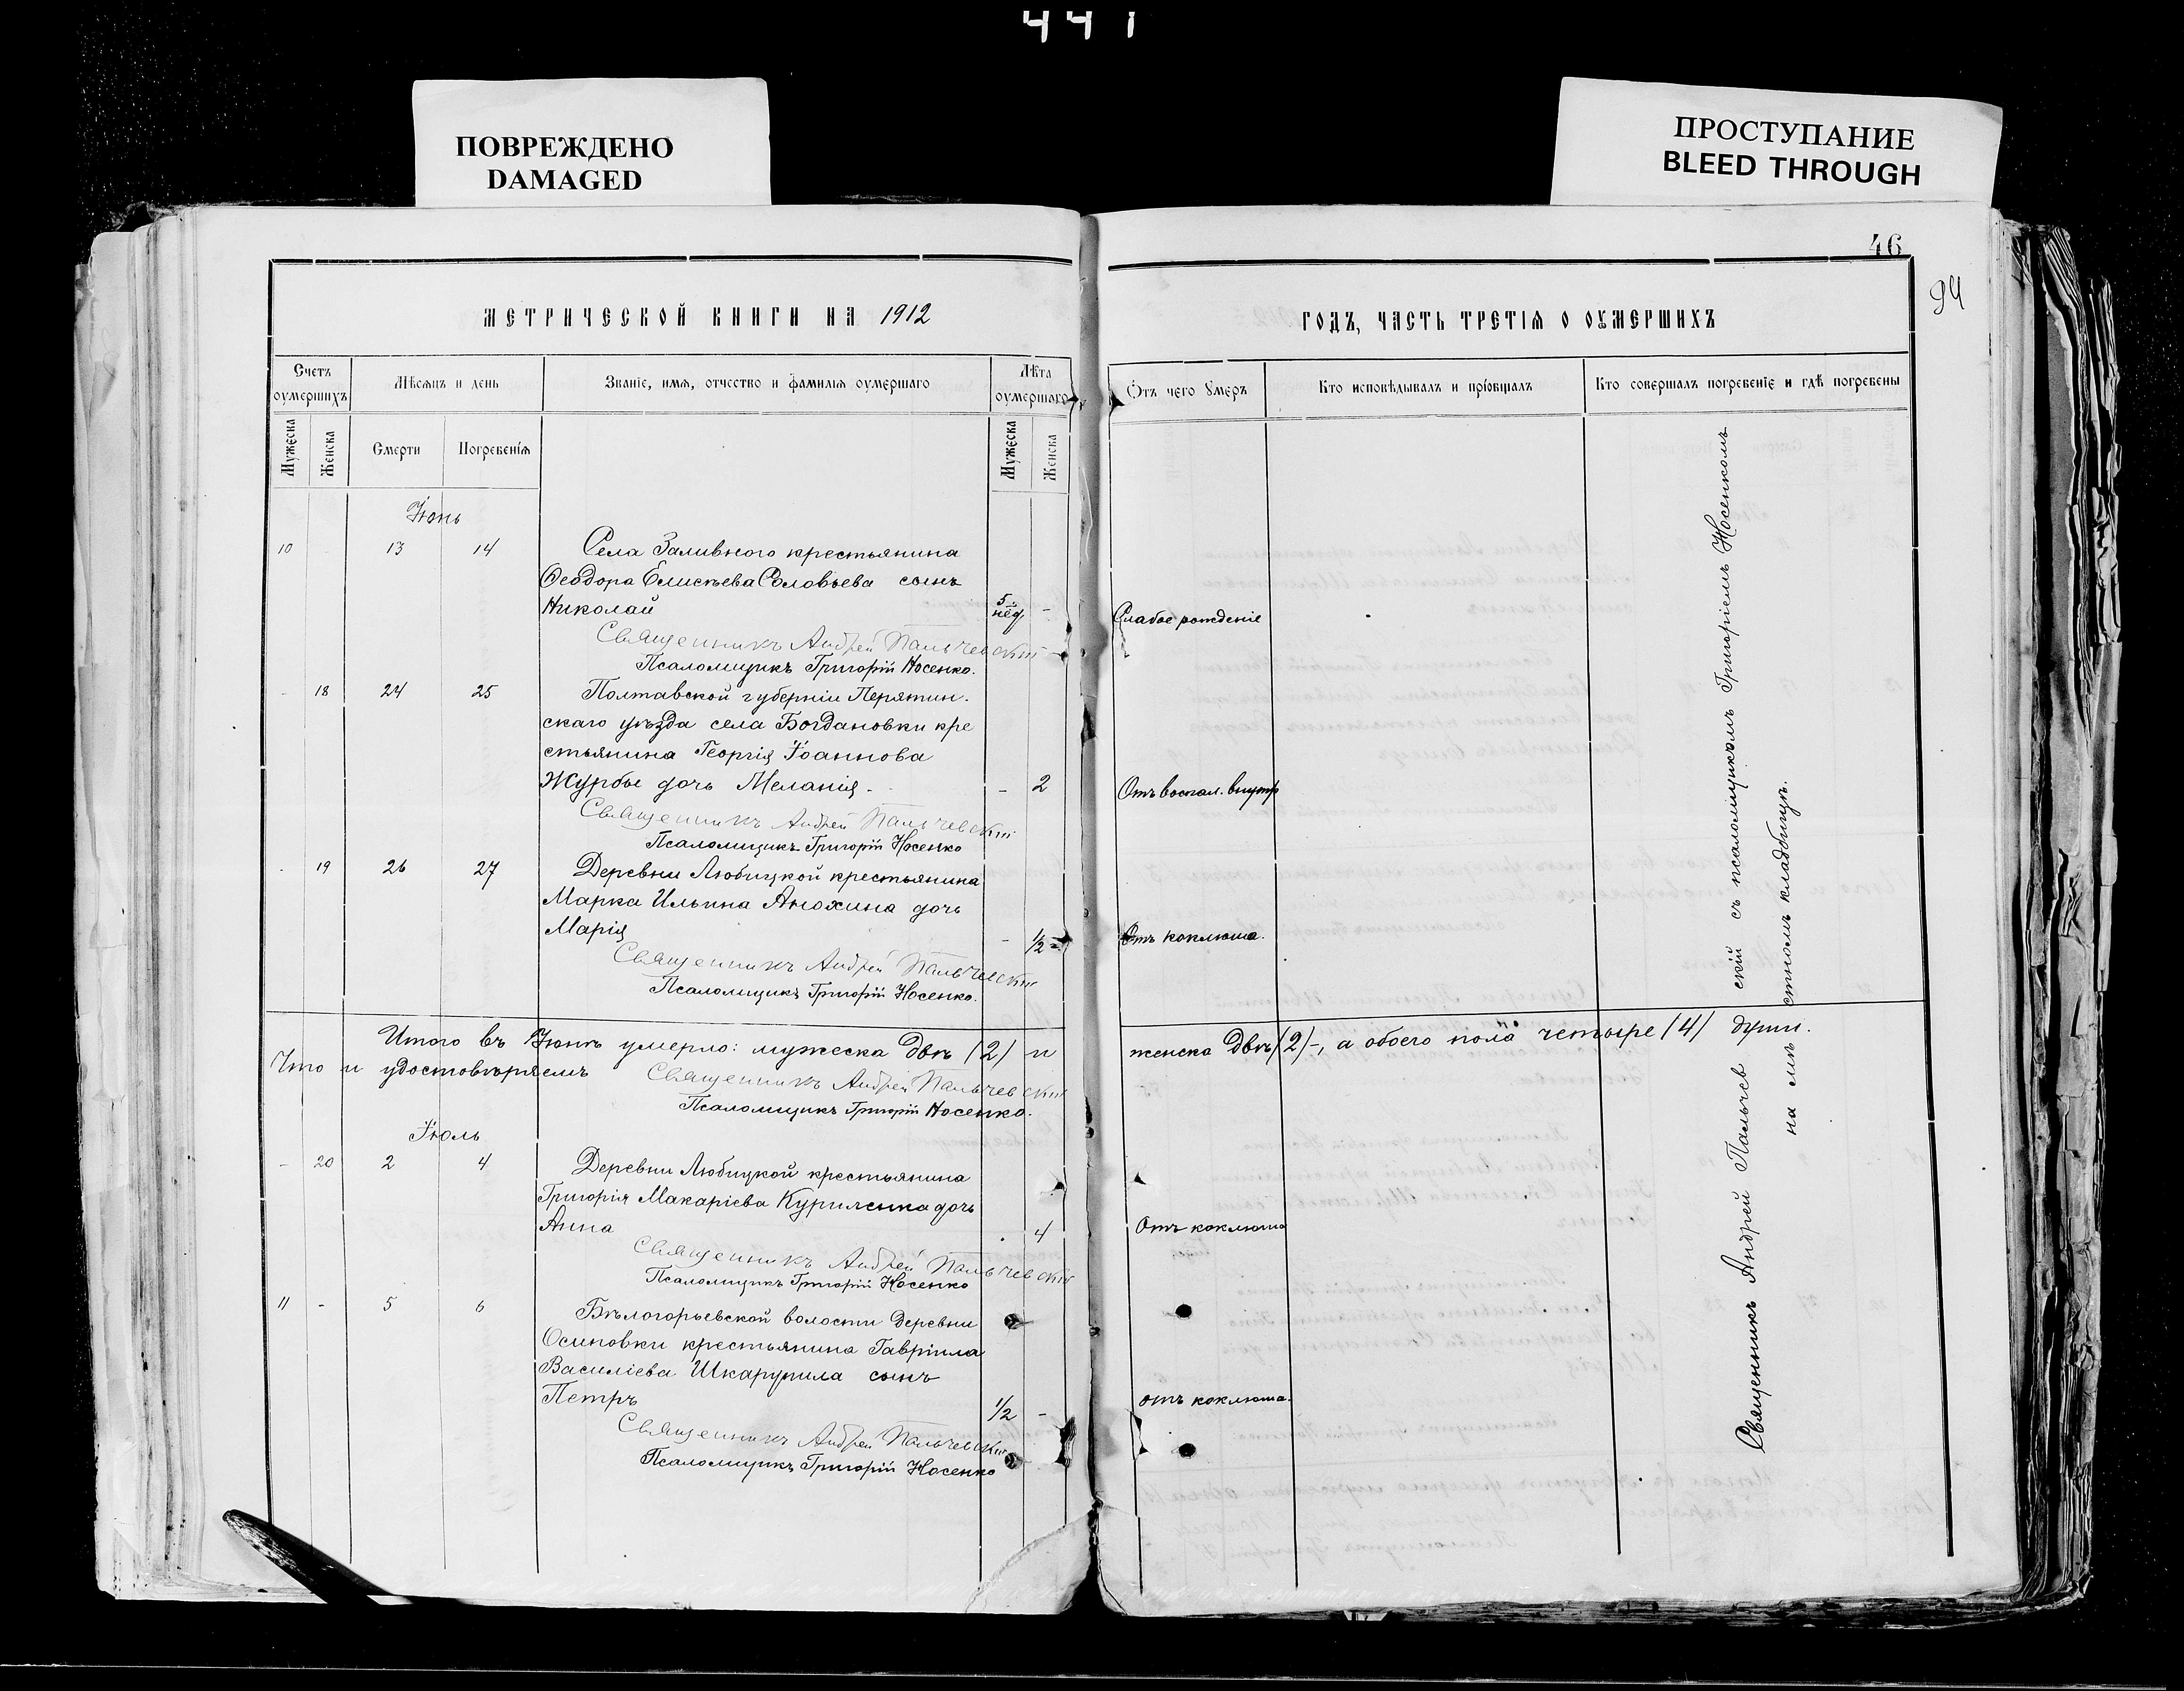 441
ПОВРЕЖДЕНО
DAMAGED
ПРОСТУПАНИЕ
BLEED THROUGH
46
94
МЕТРИЧЕСКОЙ КНИГИ НА 1912
ГОДЪ, ЧАСТЬ ТРЕТІЯ О ОУМЕРШИХЪ
Счетъ оумершихъ
Мѣсяцъ и день
Званіе, имя, отчество и фамилія оумершаго
Лѣта оумершаго
Отъ чего умеръ
Кто исповѣдывалъ и пріобщалъ
Кто совершалъ погребеніе и гдѣ погребены
Мужеска
Женска
Смерти
Погребенія
Мужеска
Женска
Іюнь
10 13 14 Села Заливного крестьянина
Ѳеодора Елисѣева Соловьева сынъ
Николай 5 нед - Слабое рожденіе
Священникъ Андрей Пальчевскій
Псаломщикъ Григорій Носенко.
- 18 24 25 Полтавской губерніи Перятин-
скаго уѣзда села Богдановки кре
стьянина Георгія Іоаннова
Журбы дочь Меланія. - 2 Отъ воспал. внутр
Священникъ Андрей Пальчевскій
Псаломщикъ Григорій Носенко
- 19 26 27 Деревни Любицкой крестьянина
Марка Ильина Анохина дочь
Марія - 1/2 Отъ коклюша.
Священникъ Андрей Пальчевскій
Псаломщикъ Григорій Носенко.
Итого въ Іюнѣ умерло: мужеска двѣ (2) и женска двѣ (2)-, а обоего пола четыре (4) души.
Что и удостовѣряемъ Священникъ Андрей Пальчевскій
Псаломщикъ Григорій Носенко.
Іюль
- 20 2 4 Деревни Любицкой крестьянина
Григорія Макаріева Куриленка дочь
Анна . 4 Отъ коклюша
Священникъ Андрей Пальчевскій
Псаломщикъ Григорій Носенко
11 - 5 6 Бѣлогорьевской волости деревни
Осиновки крестьянина Гавріила
Василіева Шкарупила сынъ
Петръ 1/2 - отъ коклюша.
Священникъ Андрей Пальчевскій
Псаломщикъ Григорій Носенко
Священникъ Андрей Пальчевскій съ псаломщикомъ Григоріемъ Носенкомъ
на мѣстномъ кладбищѣ.